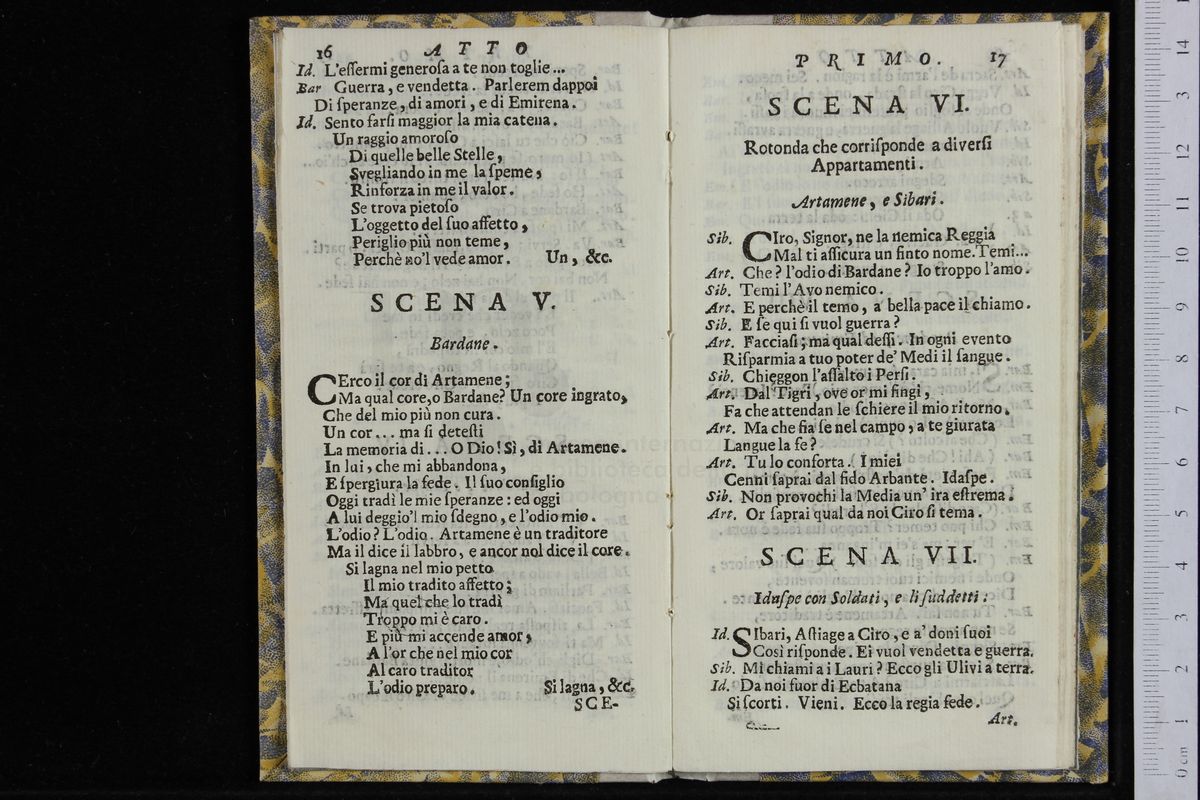 16 ATTO
Id. L'eſſermi generoſa a te non toglie...
Bar Guerra, e vendetta. Parlerem dappoi
Di ſperanze, di amori, e di Emirena.
Id. Sento farſi maggior la mia catena.
Un raggio amoroſo
Di quelle belle Stelle,
Svegliando in me la ſpeme,
Rinforza in me il valor.
Se trova pietoſo
L'oggetto del ſuo affetto,
Periglio più non teme,
Perchè no'l vede amor. Un, &c.
SCENA V.
Bardane.
CErco il cor di Artamene;
Ma qual core, o Bardane? Un core ingrato,
Che del mio più non cura.
Un cor... ma ſi deteſti
La memoria di... O Dio! Sì, di Artamene.
In lui, che mi abbandona,
E ſpergiura la fede. Il ſuo conſiglio
Oggi tradì le mie ſperanze: ed oggi
A lui deggio'l mio ſdegno, e l'odio mio.
L'odio? L'odio. Artamene è un traditore
Ma il dice il labbro, e ancor nol dice il core.
Si lagna nel mio petto
Il mio tradito affetto;
Ma quel che lo tradì
Troppo mi è caro.
E più mi accende amor,
A l'or che nel mio cor
Al caro traditor
L'odio preparo. Si lagna, &c.
SCE-
PRIMO. 17
SCENA VI.
Rotonda che corriſponde a diverſi
Appartamenti.
Artamene, e Sibari.
Sib. CIro, Signor, ne la nemica Reggia
Mal ti aſſicura un finto nome. Temi...
Art. Che? l'odio di Bardane? Io troppo l'amo.
Sib. Temi l'Avo nemico.
Art. E perchè il temo, a bella pace il chiamo.
Sib. E ſe qui ſi vuol guerra?
Art. Facciaſi; ma qual deſſi. In ogni evento
Riſparmia a tuo poter de' Medi il ſangue.
Sib. Chieggon l'aſſalto i Perſi.
Art. Dal Tigri, ove or mi fingi,
Fa che attendan le ſchiere il mio ritorno.
Art. Ma che fia ſe nel campo, a te giurata
Langue la fe?
Art. Tu lo conforta. I miei
Cenni ſaprai dal fido Arbante. Idaſpe.
Sib. Non provochi la Media un' ira eſtrema.
Art. Or ſaprai qual da noi Ciro ſi tema.
SCENA VII.
Idaſpe con Soldati, e li ſuddetti:
Id. SIbari, Aſtiage a Ciro, e a' doni ſuoi
Così riſponde. Ei vuol vendetta e guerra.
Sib. Mi chiami a i Lauri? Ecco gli Ulivi a terra.
Id. Da noi fuor di Ecbatana
Si ſcorti. Vieni. Ecco la regia fede.
Art.